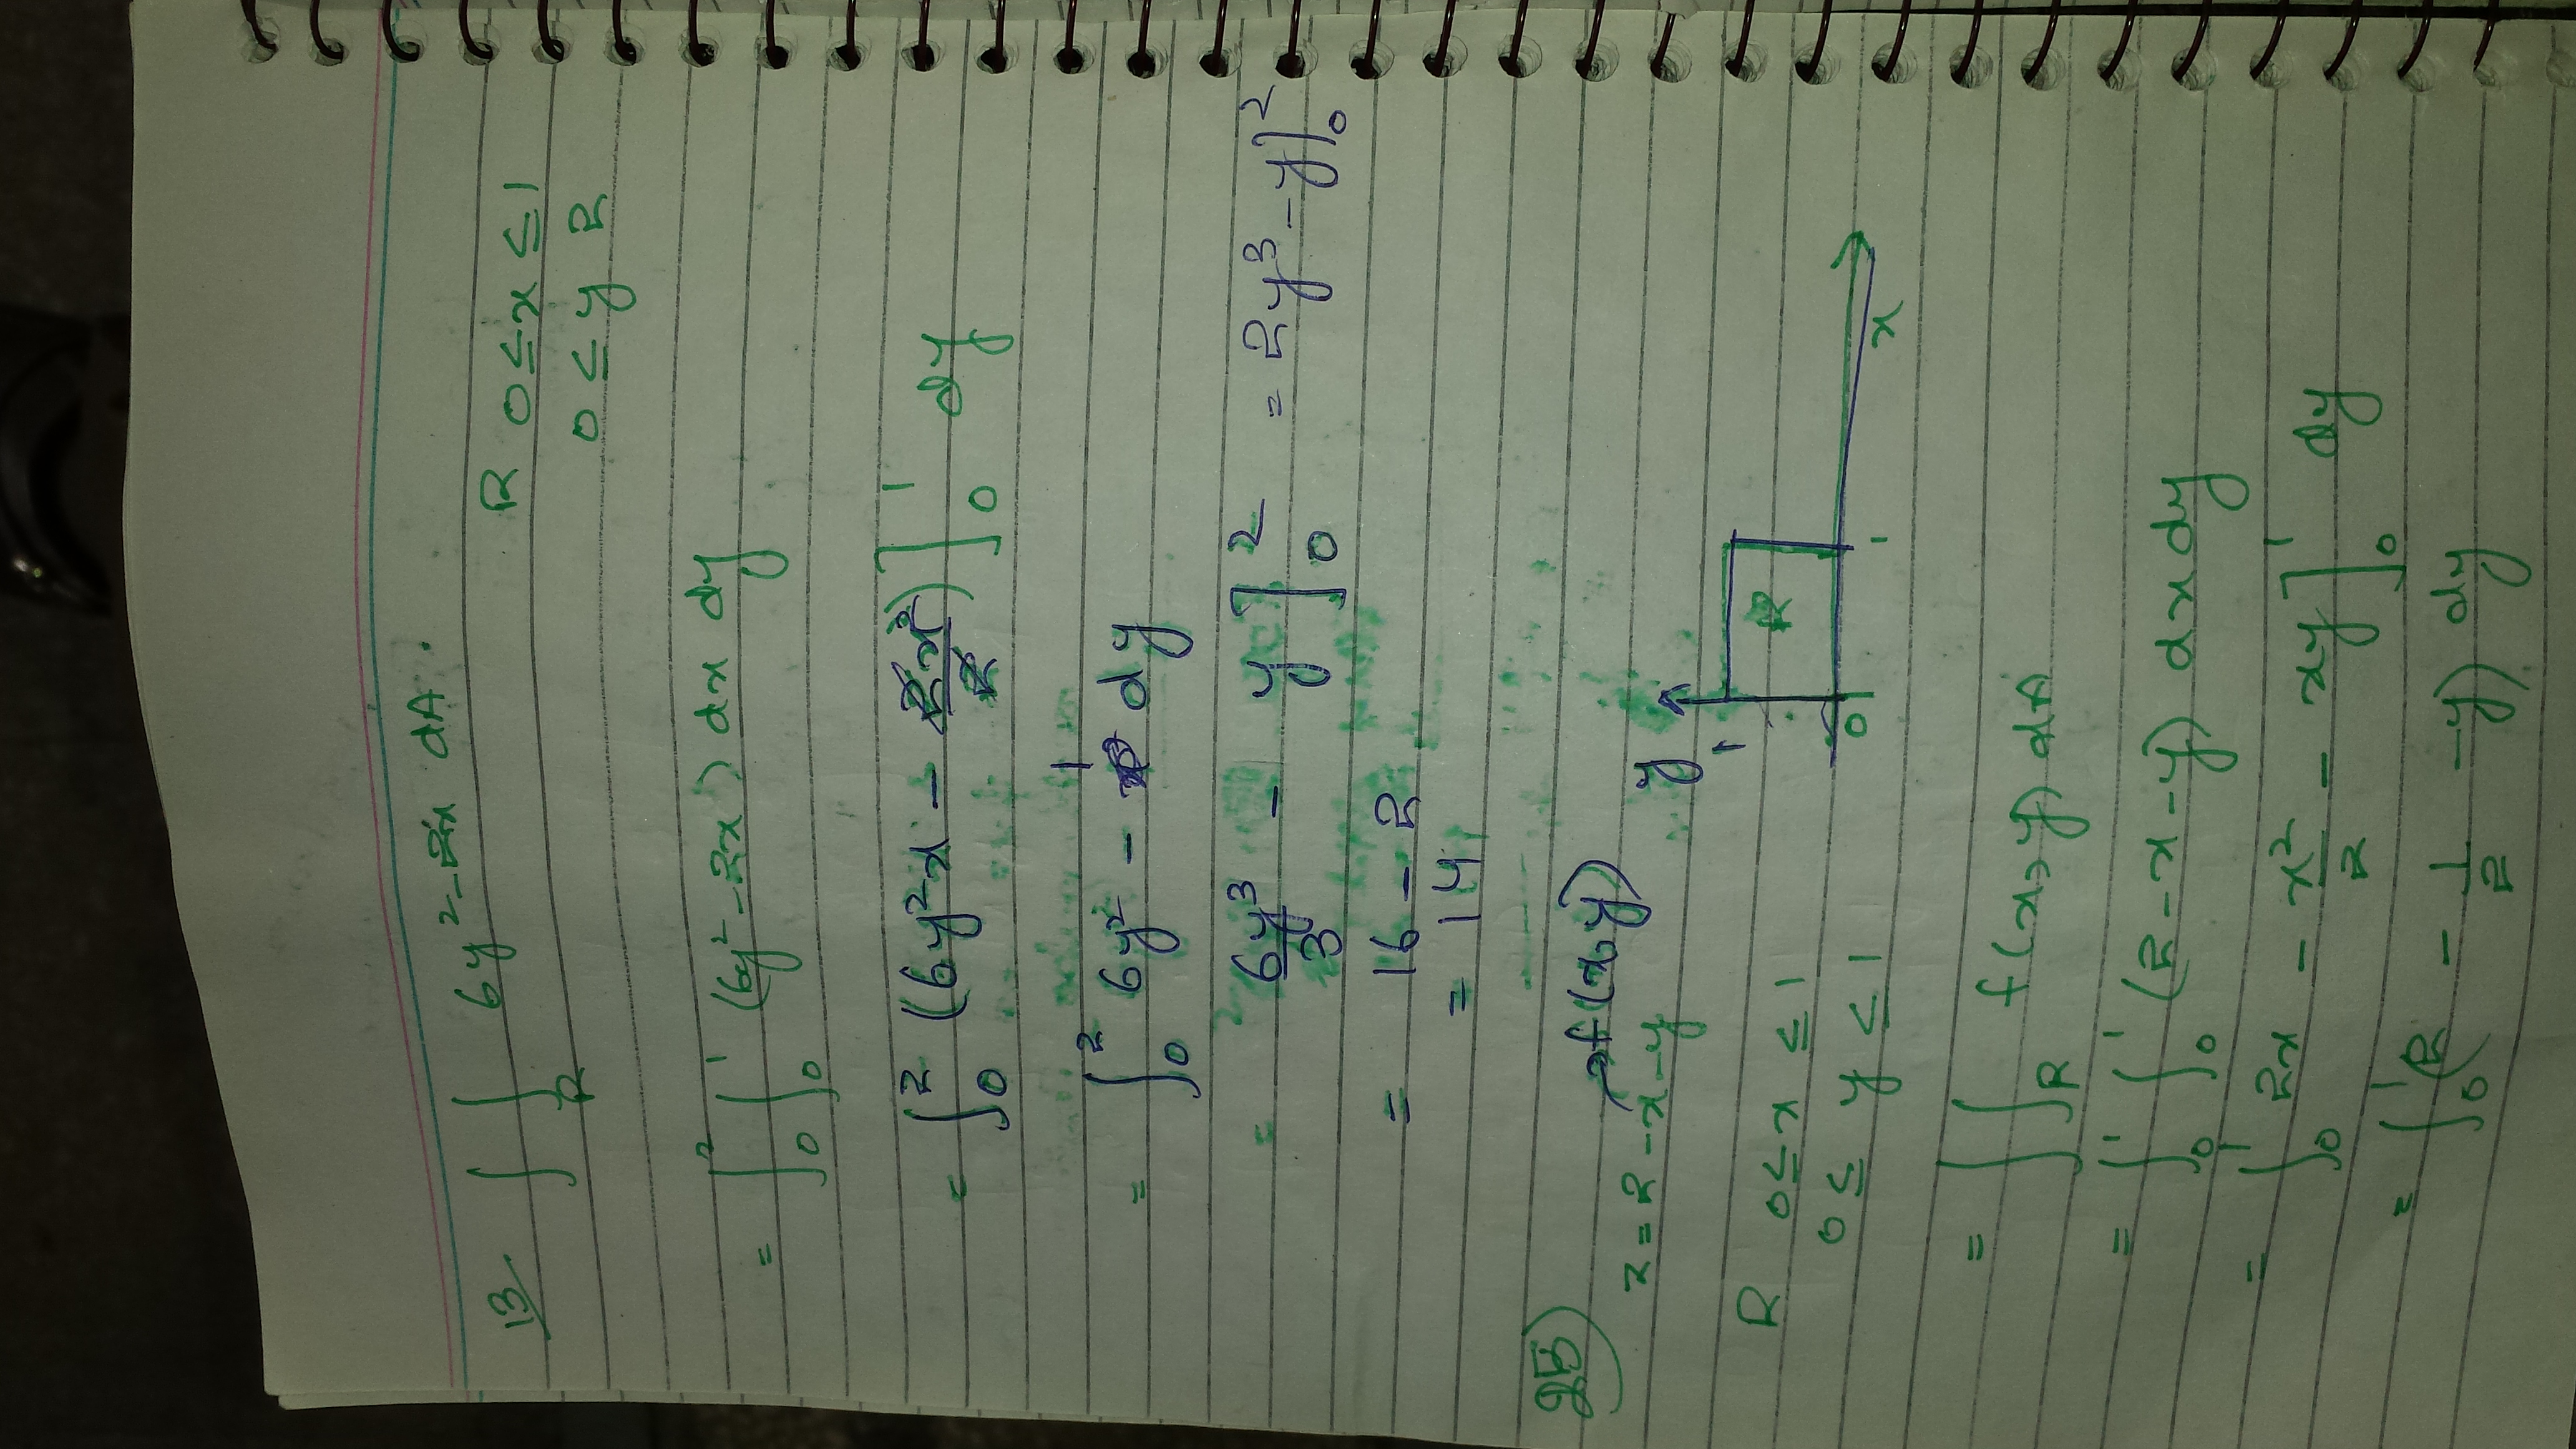 13 ∫∫_R 6y² - 2x dA.
R 0 ≤ x ≤ 1
0 ≤ y 2
= ∫₀² ∫₀¹ (6y² - 2x) dx dy
= ∫₀² (6y²x - 2x²/2) ]₀¹ dy
= ∫₀² 6y² - 1 dy
= 6y³/3 - y ]₀² = 2y³ - y ]₀²
= 16 - 2
= 14
25)
→ f(x,y)
z = 2 - x - y
y
1
R
R 0 ≤ x ≤ 1
0 ≤ y ≤ 1
0 1 x
= ∫∫_R f(x,y) dA
= ∫₀¹ ∫₀¹ (2 - x - y) dx dy
= ∫₀¹ 2x - x²/2 - xy ]₀¹ dy
= ∫₀¹ (2 - 1/2 - y) dy